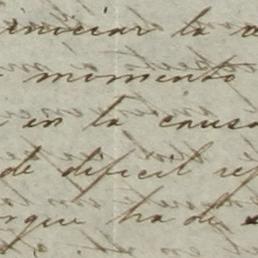 iniciar la a
momento
en la causa
de dificil re
rque ha de